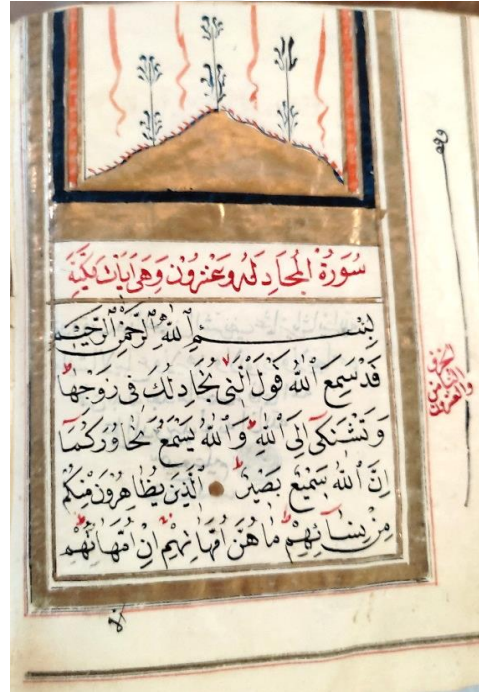 سُورَةُ المُجَادِلَهُ وَعَشِرُونَ وَهِىَ اٰيَاتٌ مَكِّيَّةٌ
بِسْمِ اللّٰهِ الرَّحْمٰنِ الرَّحِيْمِ
قَدْ سَمِعَ اللّٰهُ قَوْلَ الَّتِى تُجَادِلُكَ فِى زَوْجِهَا
وَتَشْتَكِى اِلَى اللّٰهِ وَاللّٰهُ يَسْمَعُ تَحَاوُرَكُمَا
اِنَّ اللّٰهَ سَمِيْعٌ بَصِيْرٌ اَلَّذِيْنَ يُظَاهِرُوْنَ مِنْكُمْ
مِنْ نِسَآئِهِمْ مَا هُنَّ اُمَّهَاتِهِمْ اِنْ اُمَّهَاتُهُمْ
الجزؤ
الثامن
والعشرون